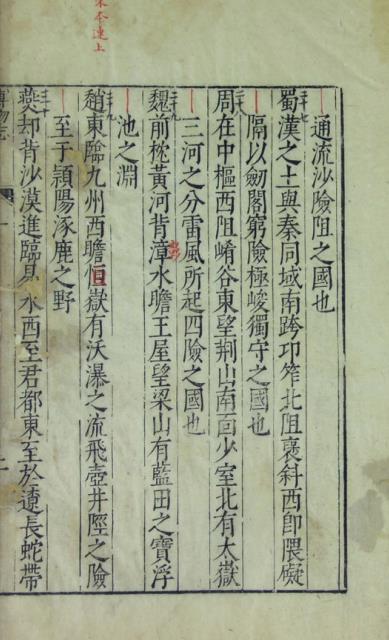 通流沙險阻之國也
蜀漢之土與秦同域南跨卭筰北阻褒斜西卽隈礙
隔以劒閣窮險極峻獨守之國也
周在中樞西阻崤谷東望荆山南靣少室北有太嶽
三河之分雷風所起四險之國也
魏前枕黃河背漳水瞻王屋望梁山有藍田之寶浮
池之淵
趙東臨九州西瞻恒嶽有沃瀑之流飛壺井陘之險
至于潁陽涿鹿之野
燕却背沙漠進臨易水西至君都東至於遼長蛇帶